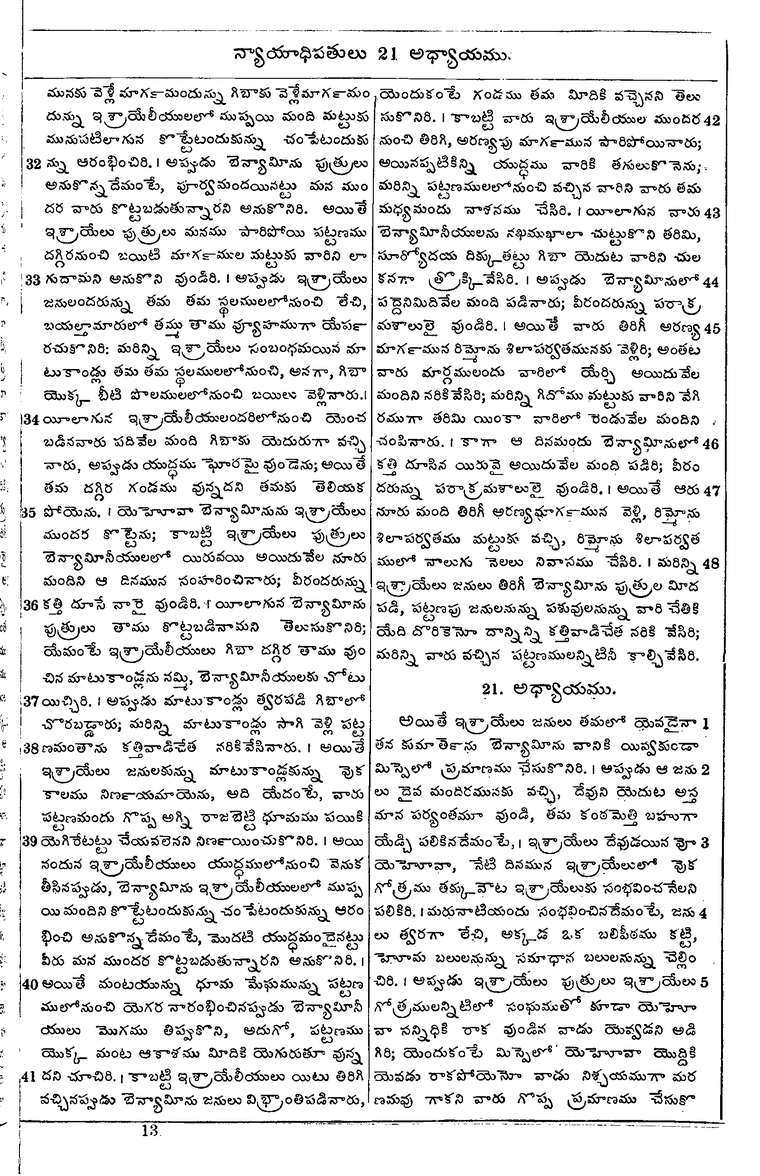 న్యాయాధిపతులు 21 అధ్యాయము.
మునకు వెళ్లే మార్గమందున్న గిబాకు వెళ్లేమార్గమం
దున్న ఇశ్రాయేలీయులలో ముప్పయి మంది మట్టుకు
మునుపటిలాగున కొట్టేటందుకున్ను చంపేటందుకు
32 న్ను ఆరంభించిరి. । అప్పుడు బెన్యామీను పుత్రులు
అనుకొన్న దేమంటే, పూర్వమందయినట్టు మన ముం
దర వారు కొట్టబడుతున్నారని అనుకొనిరి. అయితే
ఇశ్రాయేలు పుత్రులు మనము పారిపోయి పట్టణము
దగ్గిరనుంచి బయిటి మార్గముల మట్టుకు వారిని లా
33 గుదామని అనుకొని వుండిరి. । అప్పుడు ఇశ్రాయేలు
జనులందరున్ను తమ తమ స్థలములలోనుంచి లేచి,
బయల్తామారులో తమ్ము తాము వ్యూహముగా యేపర్
రచుకొనిరి: మరిన్ని ఇశ్రాయేలు సంబంధమయిన మా
టుకాండ్లు తమ తమ స్థలములలోనుంచి, అనగా, గిబా
యొక్క బీటి పొలములలోనుంచి బయిలు వెళ్లినారు.।
34 యీలాగున ఇశ్రాయేలీయులందరిలోనుంచి యెంచ
బడినవారు పదివేల మంది గిబాకు యెదురుగా వచ్చి
నారు, అప్పుడు యుద్ధము ఘోరమై వుండెను; అయితే
తమ దగ్గిర గండము వున్నదని తమకు తెలియక
35 పోయెను. । యెహోవా బెన్యామీనును ఇశ్రాయేలు
ముందర కొట్టెను; కాబట్టి ఇశ్రాయేలు పుత్రులు
బెన్యామీనీయులలో యిరువయి అయిదువేల నూరు
మందిని ఆ దినమున సంహరించినారు; వీరందరున్ను
36 కత్తి దూసే వారై వుండిరి. । యీలాగున బెన్యామీను
పుత్రులు తాము కొట్టబడినామని తెలుసుకొనిరి;
యేమంటే ఇశ్రాయేలీయులు గిబా దగ్గిర తాము వుం
చిన మాటుకాండ్లను నమ్మి, బెన్యామీనీయులకు చోటు
37 యిచ్చిరి. । అప్పుడు మాటుకాండ్లు త్వరపడి గిబాలో
చొరబడ్డారు; మరిన్ని మాటుకాండ్లు సాగి వెళ్లి పట్ట
38 ణమంతాను కత్తివాడిచేత నరికివేసినారు. । అయితే
ఇశ్రాయేలు జనులకున్ను మాటుకాండ్లకున్ను వుక
కాలము నిర్ణయమాయెను, అది యేదంటే, వారు
పట్టణమందు గొప్ప అగ్ని రాజబెట్టి ధూమము పయికి
39 యెగిరేటట్టు చేయవలెనని నిర్ణయించుకొనిరి. । అయి
నందున ఇశ్రాయేలీయులు యుద్ధములోనుంచి వెనుక
తీసినప్పుడు, బెన్యామీను ఇశ్రాయేలీయులలో ముప్ప
యి మందిని కొట్టేటందుకున్ను చంపేటందుకున్ను ఆరం
భించి అనుకొన్న దేమంటే, మొదటి యుద్ధమందైనట్టు
వీరు మన ముందర కొట్టబడుతున్నారని అనుకొనిరి. ।
40 అయితే మంటయున్ను ధూమ మేఘమున్ను పట్టణ
ములోనుంచి యెగర నారంభించినప్పుడు బెన్యామీనీ
యులు మొగము తిప్పుకొని, అదుగో, పట్టణము
యొక్క మంట ఆకాశము మీదికి యెగురుతూ వున్న
41 దని చూచిరి. । కాబట్టి ఇశ్రాయేలీయులు యిటు తిరిగి
వచ్చినప్పుడు బెన్యామీను జనులు విభ్రాంతిపడినారు,
యెందుకంటే గండము తమ మీదికి వచ్చెనని తెలు
సుకొనిరి. । కాబట్టి వారు ఇశ్రాయేలీయుల ముందర 42
నుంచి తిరిగి, అరణ్యపు మార్గమున పారిపోయినారు;
అయినప్పటికిన్ని యుద్ధము వారికి తగులుకొనెను;
మరిన్ని పట్టణములలోనుంచి వచ్చిన వారిని వారు తమ
మధ్యమందు నాశనము చేసిరి. । యీలాగున వారు 43
బెన్యామీనీయులను నఖముఖాలా చుట్టుకొని తరిమి,
సూర్యోదయ దిక్కుతట్టు గిబా యెదుట వారిని చుల
కనగా త్రొక్కివేసిరి. । అప్పుడు బెన్యామీనులో 44
పద్దెనిమిదివేల మంది పడినారు; వీరందరున్ను పరాక్ర
మశాలులై వుండిరి. । అయితే వారు తిరిగీ అరణ్య 45
మార్గమున రిమ్మోను శిలాపర్వతమునకు వెళ్లిరి; అంతట
వారు మార్గములందు వారిలో యేర్చి అయిదువేల
మందిని నరికివేసిరి; మరిన్ని గిదోము మట్టుకు వారిని వేగి
రముగా తరిమి యింకా వారిలో రెండువేల మందిని
చంపినారు. । కాగా ఆ దినమందు బెన్యామీనులో 46
కత్తి దూసిన యిరువై అయిదువేల మంది పడిరి; వీరం
దరున్ను పరాక్రమశాలులై వుండిరి. । అయితే ఆరు 47
నూరు మంది తిరిగీ అరణ్యమార్గమున వెళ్లి, రిమ్మోను
శిలాపర్వతము మట్టుకు వచ్చి, రిమ్మోను శిలాపర్వత
ములో నాలుగు నెలలు నివాసము చేసిరి. । మరిన్ని 48
ఇశ్రాయేలు జనులు తిరిగీ బెన్యామీను పుత్రుల మీద
పడి, పట్టణపు జనులనున్ను పశువులనున్ను వారి చేతికి
యేది దొరికెనో దాన్నిన్ని కత్తివాడిచేత నరికి వేసిరి;
మరిన్ని వారు వచ్చిన పట్టణములన్నిటినీ కాల్చివేసిరి.
21. అధ్యాయము.
అయితే ఇశ్రాయేలు జనులు తమలో యెవడైనా 1
తన కుమార్తెను బెన్యామీను వానికి యివ్వకుండా
మిస్పెలో ప్రమాణము చేసుకొనిరి. । అప్పుడు ఆ జను 2
లు దైవ మందిరమునకు వచ్చి, దేవుని యెదుట అస్త
మాన పర్యంతమూ వుండి, తమ కంఠమెత్తి బహుగా
యేడ్చి పలికినదేమంటే,। ఇశ్రాయేలు దేవుడయిన వో 3
యెహోవా, నేటి దినమున ఇశ్రాయేలులో వుక
గోత్రము తక్కువౌట ఇశ్రాయేలుకు సంభవించనేలని
పలికిరి. । మరునాటియందు సంభవించినదేమంటే, జను 4
లు త్వరగా లేచి, అక్కడ ఒక బలిపీఠము కట్టి,
హోమ బలులనున్ను సమాధాన బలులనున్ను చెల్లిం
చిరి. । అప్పుడు ఇశ్రాయేలు పుత్రులు ఇశ్రాయేలు 5
గోత్రములన్నిటిలో సంఘముతో కూడా యెహో
వా సన్నిధికి రాక వుండిన వాడు యెవ్వడని అడి
గిరి; యెందుకంటే మిస్పెలో యెహోవా యొద్దికి
యెవడు రాకపోయెనో వాడు నిశ్చయముగా మర
ణమవు గాకని వారు గొప్ప ప్రమాణము చేసుకొ
13